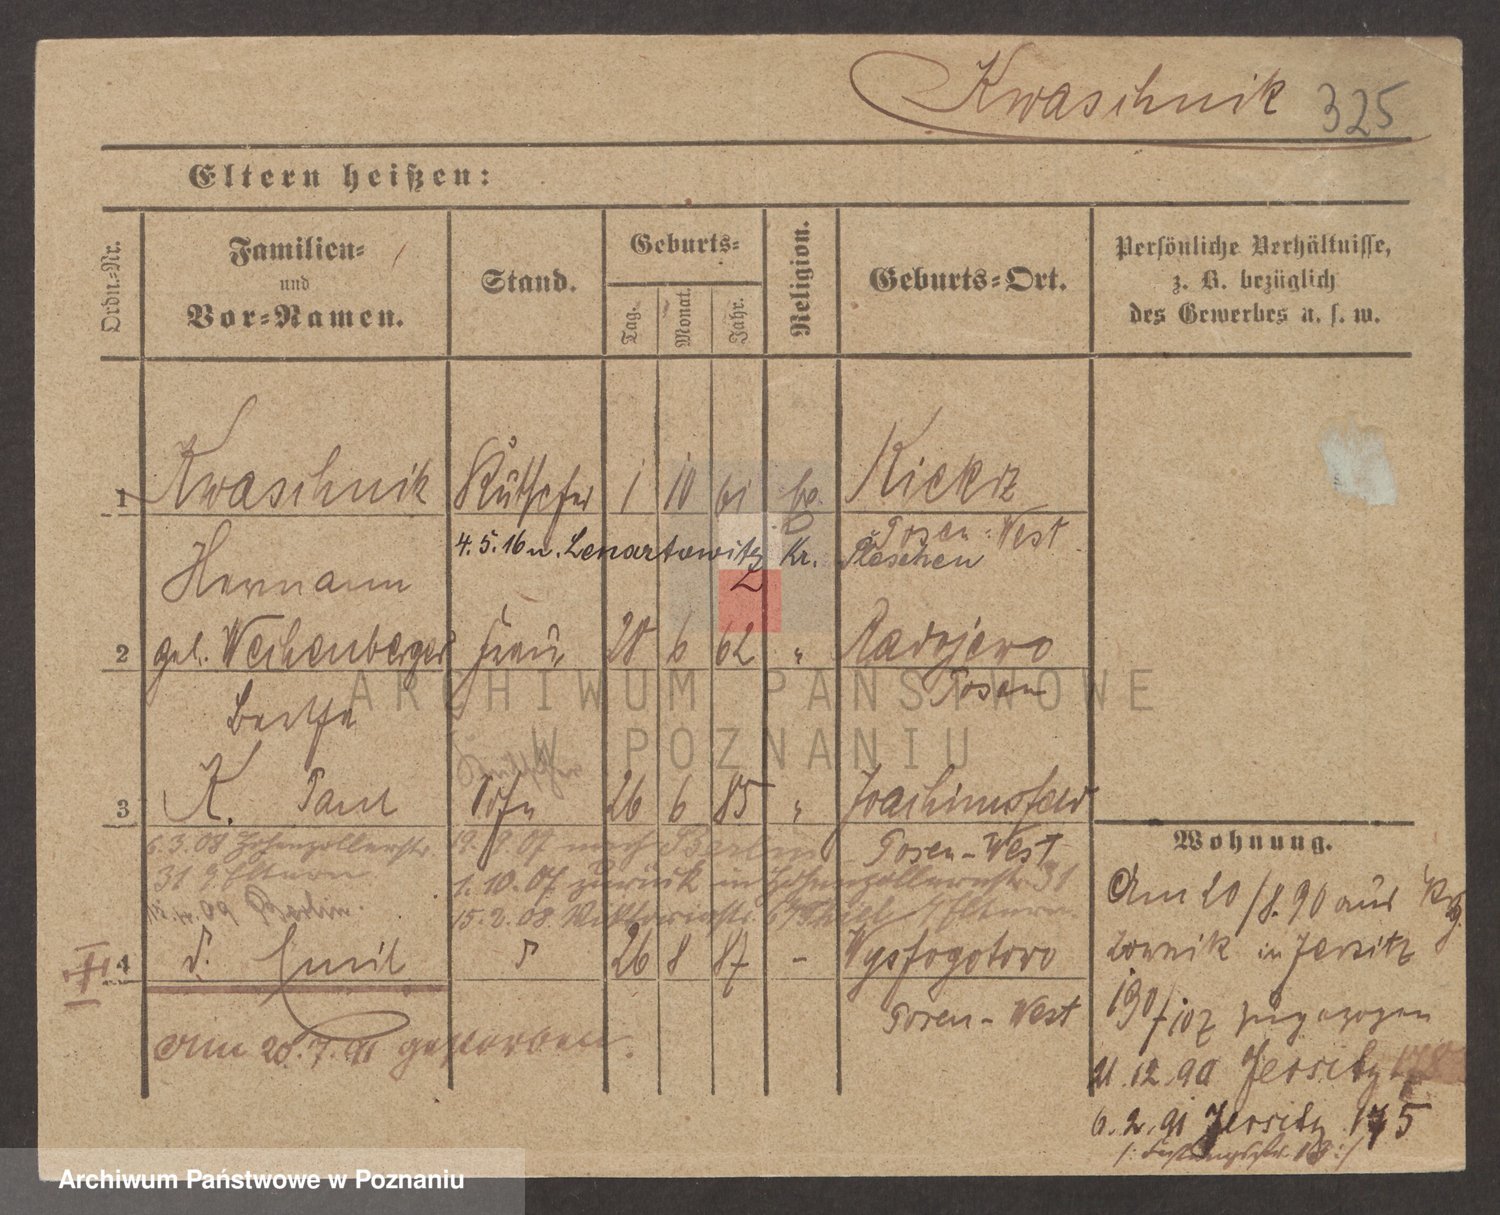 Kwaschnik 325
Eltern heißen:
Ordn.=Nr. Familien= und Vor=Namen. Stand. Geburts= Tag. Monat. Jahr. Religion. Geburts=Ort. Persönliche Verhältnisse, z. B. bezüglich des Gewerbes u. s. w.
1 Kwaschnik Kutscher 1 10 61 Kiekrz
Posen-West
4.5.16 n. Lenartowitz Kr. Pleschen
Hermann
2 geb. Weihenberger Frau 28 6 62 " Radojewo
Posen
Bertha
3 K. Paul Sohn 26 6 85 " Joachimsfeld
Posen-West
6.3.08 Hohenzollernstr. 31 Eltern
19.9.07 nach Berlin
1.10.07 zurück in Hohenzollernstr. 31
15.2.08 Viktoriastr. Eltern
09 Berlin.
II 4 d. Emil d 26 8 87 - Wyssogotowo
Posen-West
Am 20.7.91 gestorben.
Wohnung.
Am 20/8.90 aus
in Jersitz
190/107 zugezogen
21.12.90 Jersitz 178
6.2.91 Jersitz 175
ARCHIWUM PAŃSTWOWE
W POZNANIU
Archiwum Państwowe w Poznaniu